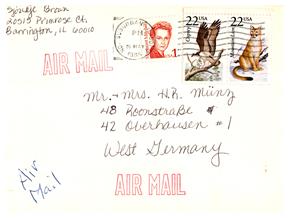 20515 Primrose Ct.
Barrington, IL 60010
22 USA
22 USA
AIR MAIL
Mr. + Mrs. H.R. Münz
48 Roonstraße
42 Oberhausen #1
West Germany
Air
Mail
AIR MAIL